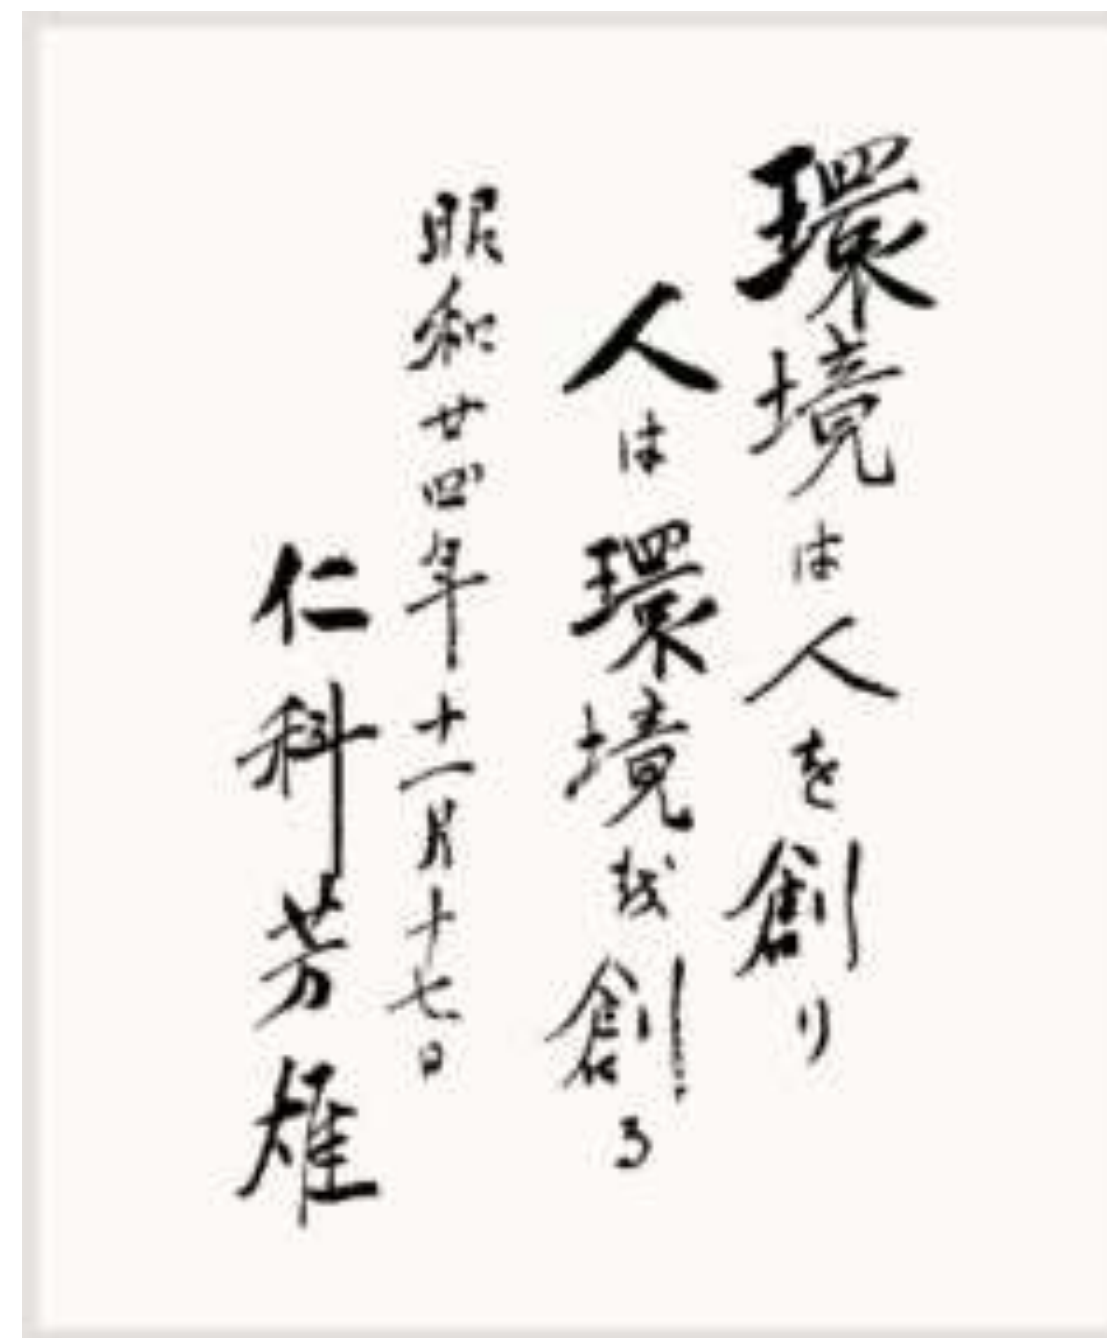 環境は人を創り
人は環境を創る
昭和廿四年十一月十七日
仁科芳雄